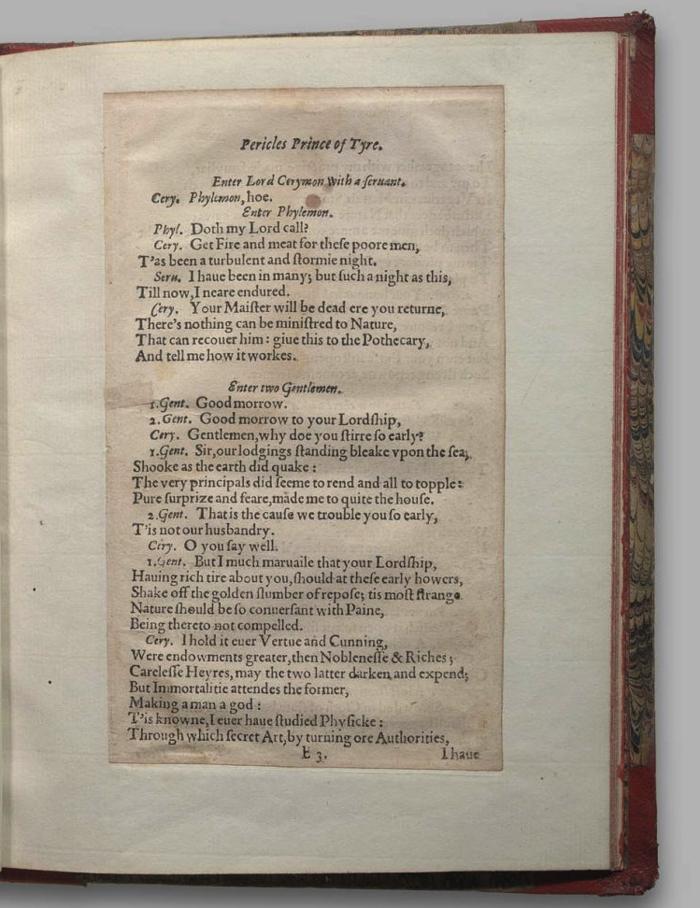 Pericles Prince of Tyre.
Enter Lord Cerymon with a ſeruant.
Cery. Phylemon, hoe.
Enter Phylemon.
Phyl. Doth my Lord call?
Cery. Get Fire and meat for theſe poore men,
T'as been a turbulent and ſtormie night.
Seru. I haue been in many; but ſuch a night as this,
Till now, I neare endured.
Cery. Your Maiſter will be dead ere you returne,
There's nothing can be miniſtred to Nature,
That can recouer him: giue this to the Pothecary,
And tell me how it workes.
Enter two Gentlemen.
1.Gent. Good morrow.
2.Gent. Good morrow to your Lordſhip,
Cery. Gentlemen, why doe you ſtirre ſo early?
1.Gent. Sir, our lodgings ſtanding bleake vpon the ſea,
Shooke as the earth did quake:
The very principals did ſeeme to rend and all to topple:
Pure ſurprize and feare, made me to quite the houſe.
2.Gent. That is the cauſe we trouble you ſo early,
T'is not our husbandry.
Cery. O you ſay well.
1.Gent. But I much maruaile that your Lordſhip,
Hauing rich tire about you, ſhould at theſe early howers,
Shake off the golden ſlumber of repoſe; tis moſt ſtrange
Nature ſhould be ſo conuerſant with Paine,
Being thereto not compelled.
Cery. I hold it euer Vertue and Cunning,
Were endowments greater, then Nobleneſſe & Riches;
Careleſſe Heyres, may the two latter darken and expend;
But Immortalitie attendes the former,
Making a man a god:
T'is knowne, I euer haue ſtudied Phyſicke:
Through which ſecret Art, by turning ore Authorities,
E 3. I haue